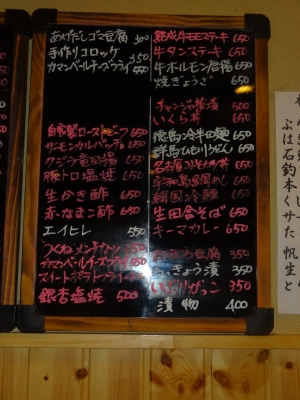 あげだしゴマ豆腐 300
手作りコロッケ 350
カマンベールチーズフライ 550
自家製ローストビーフ 650
サーモンカルパッチョ 650
クジラ竜田揚 650
豚トロ塩焼 650
生かき酢 650
赤なまこ酢 650
エイヒレ 550
つくねメンチカツ 650
カマンベールチーズフライ 550
スイートポテトフライ 550
銀杏塩焼 500
熟成牛モモステーキ 650
牛タンステーキ 650
牛ホルモン 650
焼きぎょうざ 650
チャンジャ茶漬 500
いくら丼 650
徳島冷半田麺 650
群馬ひもかわうどん 650
650
宇和島鯛めし 650
韓国冷麺 650
生田舎そば 650
キーマカレー 650
豆腐 350
っきょう漬 350
いぶりがっこ 350
漬物 400
ぶは石釣本くサた
帆生と